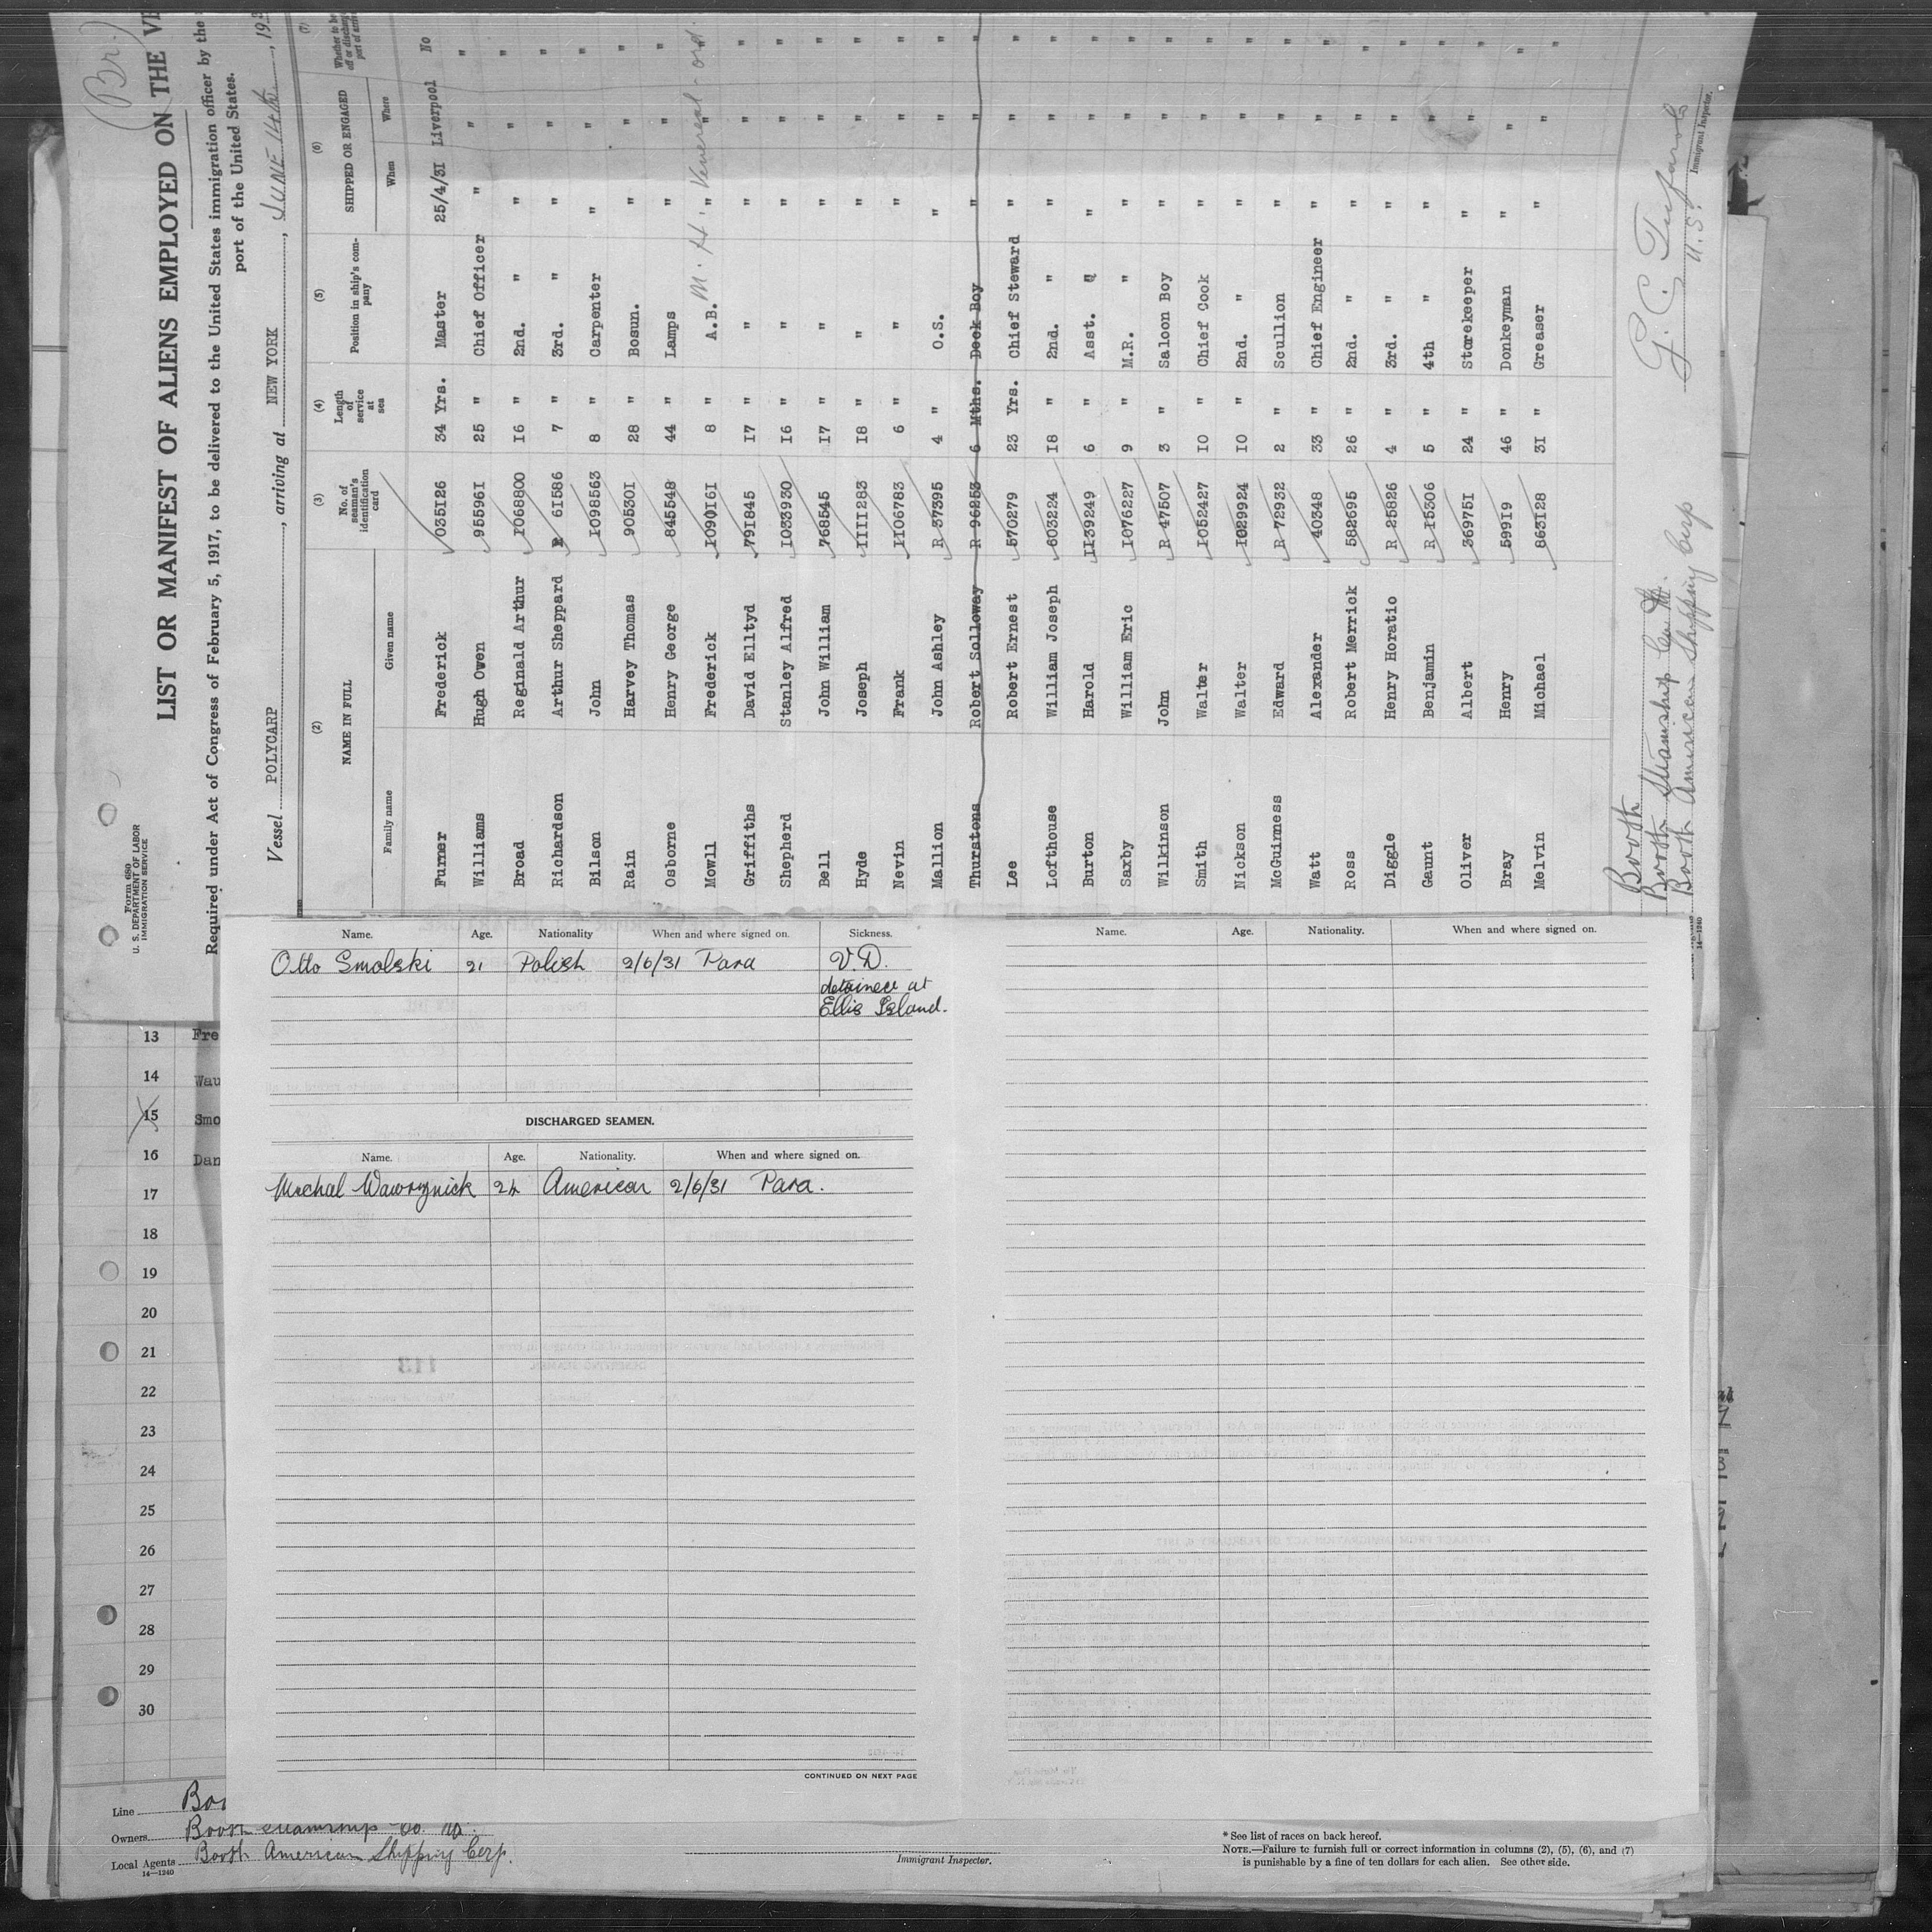 (Br.)
Form 680
U. S. DEPARTMENT OF LABOR
IMMIGRATION SERVICE
LIST OR MANIFEST OF ALIENS EMPLOYED ON THE
Required under Act of Congress of February 5, 1917, to be delivered to the United States immigration officer by the
port of the United States.
Vessel POLYCARP, arriving at NEW YORK, JUNE 14th, 193
(2) (3) (4) (5) (6) (7)
NAME IN FULL No. of seaman's identification card Length of service at sea Position in ship's company SHIPPED OR ENGAGED Whether to be
Family name Given name When Where
Furner Frederick 035126 34 Yrs. Master 25/4/31 Liverpool No
Williams Hugh Owen 955961 25 " Chief Officer " " "
Broad Reginald Arthur 1068800 16 " 2nd. " " " "
Richardson Arthur Sheppard R 61586 7 " 3rd. " " " "
Bilson John 1098563 8 " Carpenter " " "
Rain Harvey Thomas 905301 28 " Bosun. " " "
Osborne Henry George 845548 44 " Lamps " " "
Mowll Frederick 1090161 8 " A.B. M. H. Venereal - ord. " " "
Griffiths David Elltyd 791845 17 " " " " "
Shepherd Stanley Alfred 1039930 16 " " " " "
Bell John William 768545 17 " " " " "
Hyde Joseph 1111283 18 " " " " "
Nevin Frank 1106783 6 " " " " "
Mallion John Ashley R 37395 4 " O.S. " " "
Thurstons Robert Solloway R 96253 6 Mths. Deck Boy " " "
Lee Robert Ernest 570279 23 Yrs. Chief Steward " " "
Lofthouse William Joseph 603224 18 " 2nd. " " " "
Burton Harold 1139249 6 " Asst. " " " "
Saxby William Eric 1076227 9 " M.R. " " " "
Wilkinson John R 47507 3 " Saloon Boy " " "
Smith Walter 1052427 10 " Chief Cook " " "
Nickson Walter 1029924 10 " 2nd. " " " "
McGuinness Edward R 72932 2 " Scullion " " "
Watt Alexander 40348 33 " Chief Engineer " " "
Ross Robert Merrick 582695 26 " 2nd. " " " "
Diggle Henry Horatio R 25826 4 " 3rd. " " " "
Gaunt Benjamin R 15306 5 " 4th " " " "
Oliver Albert 369751 24 " Storekeeper " " "
Bray Henry 59919 46 " Donkeyman " " "
Melvin Michael 863128 31 " Greaser " " "
Booth
Booth Steamship Co.
Booth American Shipping Corp
U.S.
Immigrant Inspector.
14—1240
Name. Age. Nationality When and where signed on. Sickness.
Otto Smolski 21 Polish 2/6/31 Para V.D.
detained at
Ellis Island.
DISCHARGED SEAMEN.
Name. Age. Nationality. When and where signed on.
Michal Wawrzynick 24 American 2/6/31 Para.
CONTINUED ON NEXT PAGE
Name. Age. Nationality. When and where signed on.
13 Fre
14 Wau
15 Smo
16 Dan
17
18
19
20
21
22
23
24
25
26
27
28
29
30
Line Boo
Owners Booth Steamship Co.
Local Agents Booth American Shipping Corp.
14—1240
Immigrant Inspector.
* See list of races on back hereof.
NOTE.—Failure to furnish full or correct information in columns (2), (5), (6), and (7)
is punishable by a fine of ten dollars for each alien. See other side.